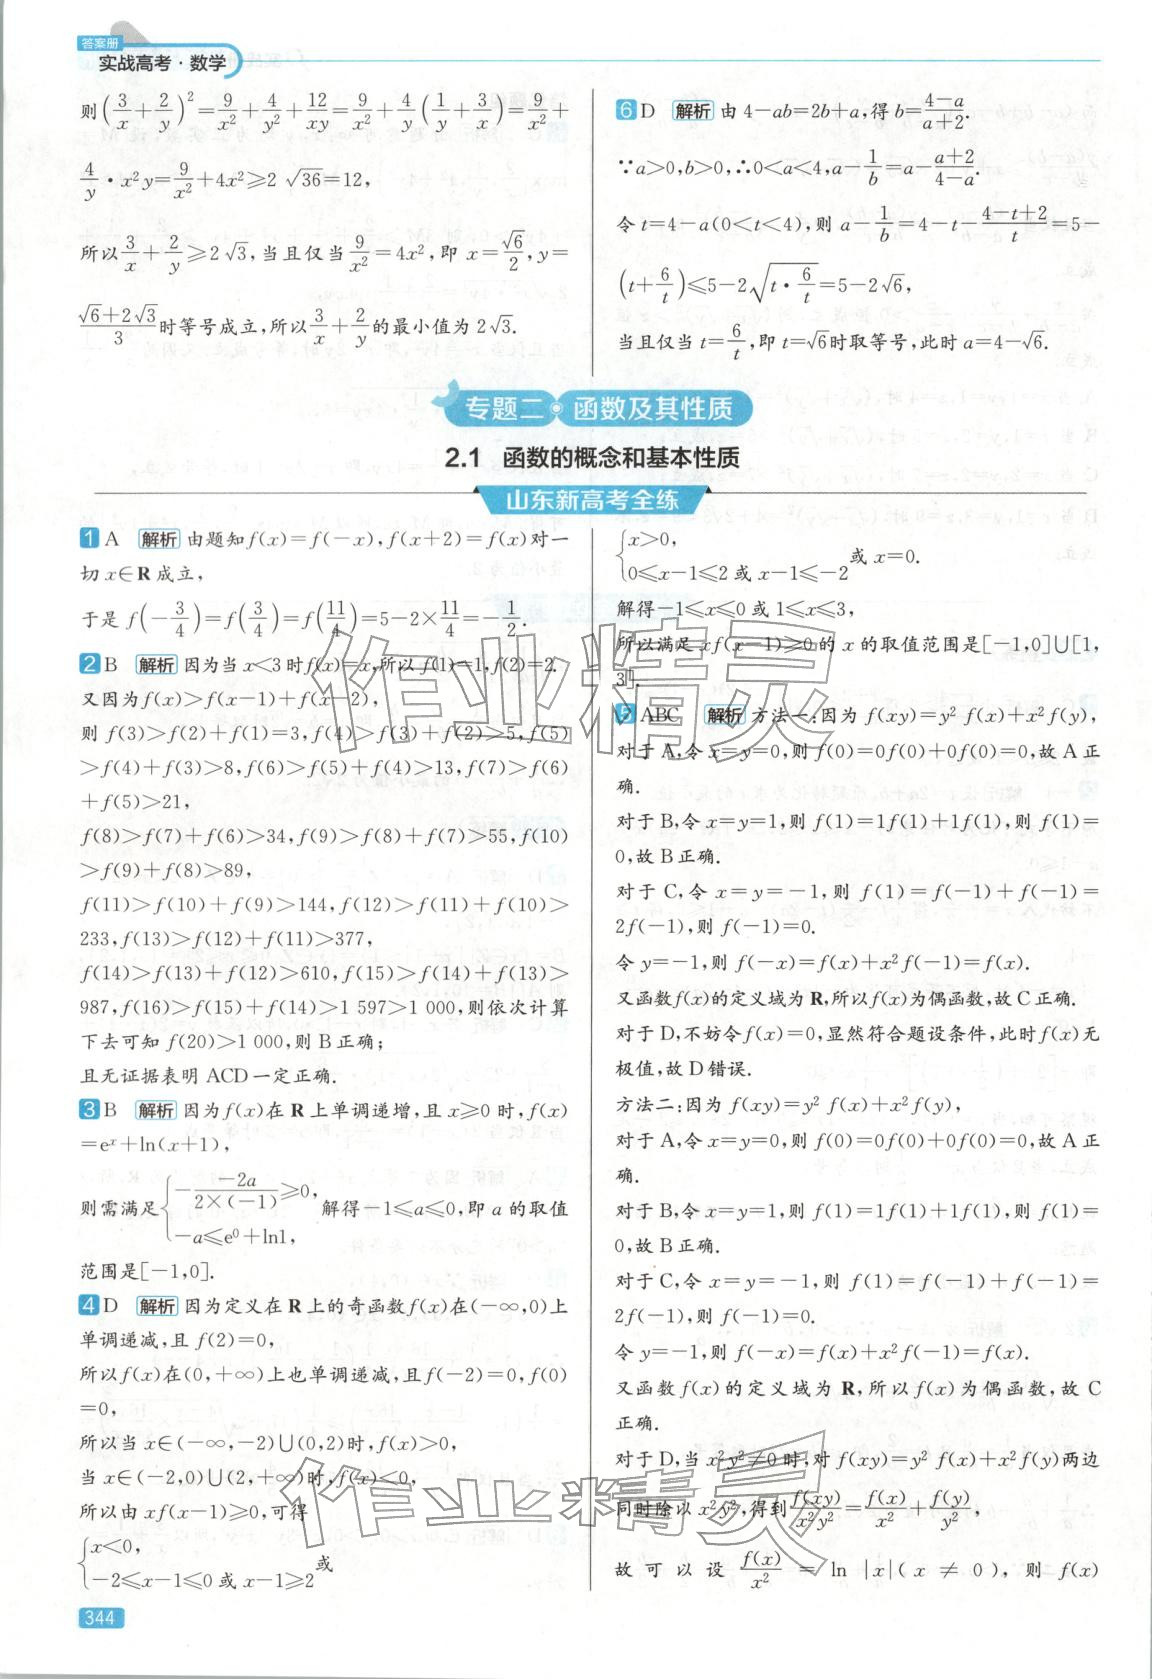 答案册
实战高考·数学
则(3/x+2/y)²=9/x²+4/y²+12/xy=9/x²+4/y(1/y+3/x)=9/x²+
4/y·x²y=9/x²+4x²≥2√36=12,
所以3/x+2/y≥2√3,当且仅当9/x²=4x²,即x=√6/2,y=
(√6+2√3)/3时等号成立,所以3/x+2/y的最小值为2√3.
6 D 解析 由4-ab=2b+a,得b=(4-a)/(a+2).
∵a>0,b>0,∴0<a<4,a-1/b=a-(a+2)/(4-a).
令t=4-a(0<t<4),则a-1/b=4-t-(4-t+2)/t=5-
(t+6/t)≤5-2√(t·6/t)=5-2√6,
当且仅当t=6/t,即t=√6时取等号,此时a=4-√6.
专题二 函数及其性质
2.1 函数的概念和基本性质
山东新高考全练
1 A 解析 由题知f(x)=f(-x),f(x+2)=f(x)对一
切x∈R成立,
于是f(-3/4)=f(3/4)=f(11/4)=5-2×11/4=-1/2.
2 B 解析 因为当x<3时f(x)=x,所以f(1)=1,f(2)=2.
又因为f(x)>f(x-1)+f(x-2),
则f(3)>f(2)+f(1)=3,f(4)>f(3)+f(2)>5,f(5)
>f(4)+f(3)>8,f(6)>f(5)+f(4)>13,f(7)>f(6)
+f(5)>21,
f(8)>f(7)+f(6)>34,f(9)>f(8)+f(7)>55,f(10)
>f(9)+f(8)>89,
f(11)>f(10)+f(9)>144,f(12)>f(11)+f(10)>
233,f(13)>f(12)+f(11)>377,
f(14)>f(13)+f(12)>610,f(15)>f(14)+f(13)>
987,f(16)>f(15)+f(14)>1 597>1 000,则依次计算
下去可知f(20)>1 000,则B正确;
且无证据表明ACD一定正确.
3 B 解析 因为f(x)在R上单调递增,且x≥0时,f(x)
=eˣ+ln(x+1),
则需满足{-(-2a)/(2×(-1))≥0, -a≤e⁰+ln1, 解得-1≤a≤0,即a的取值
范围是[-1,0].
4 D 解析 因为定义在R上的奇函数f(x)在(-∞,0)上
单调递减,且f(2)=0,
所以f(x)在(0,+∞)上也单调递减,且f(-2)=0,f(0)
=0,
所以当x∈(-∞,-2)∪(0,2)时,f(x)>0,
当x∈(-2,0)∪(2,+∞)时,f(x)<0,
所以由xf(x-1)≥0,可得
{x<0, -2≤x-1≤0或x-1≥2 或
344
{x>0, 0≤x-1≤2或x-1≤-2 或x=0.
解得-1≤x≤0或1≤x≤3,
所以满足xf(x-1)≥0的x的取值范围是[-1,0]∪[1,
3].
5 ABC 解析 方法一:因为f(xy)=y²f(x)+x²f(y),
对于A,令x=y=0,则f(0)=0f(0)+0f(0)=0,故A正
确.
对于B,令x=y=1,则f(1)=1f(1)+1f(1),则f(1)=
0,故B正确.
对于C,令x=y=-1,则f(1)=f(-1)+f(-1)=
2f(-1),则f(-1)=0.
令y=-1,则f(-x)=f(x)+x²f(-1)=f(x).
又函数f(x)的定义域为R,所以f(x)为偶函数,故C正确.
对于D,不妨令f(x)=0,显然符合题设条件,此时f(x)无
极值,故D错误.
方法二:因为f(xy)=y²f(x)+x²f(y),
对于A,令x=y=0,则f(0)=0f(0)+0f(0)=0,故A正
确.
对于B,令x=y=1,则f(1)=1f(1)+1f(1),则f(1)=
0,故B正确.
对于C,令x=y=-1,则f(1)=f(-1)+f(-1)=
2f(-1),则f(-1)=0.
令y=-1,则f(-x)=f(x)+x²f(-1)=f(x).
又函数f(x)的定义域为R,所以f(x)为偶函数,故C
正确.
对于D,当x²y²≠0时,对f(xy)=y²f(x)+x²f(y)两边
同时除以x²y²,得到f(xy)/x²y²=f(x)/x²+f(y)/y²,
故可以设f(x)/x²=ln|x|(x≠0),则f(x)
作业精灵
作业精灵